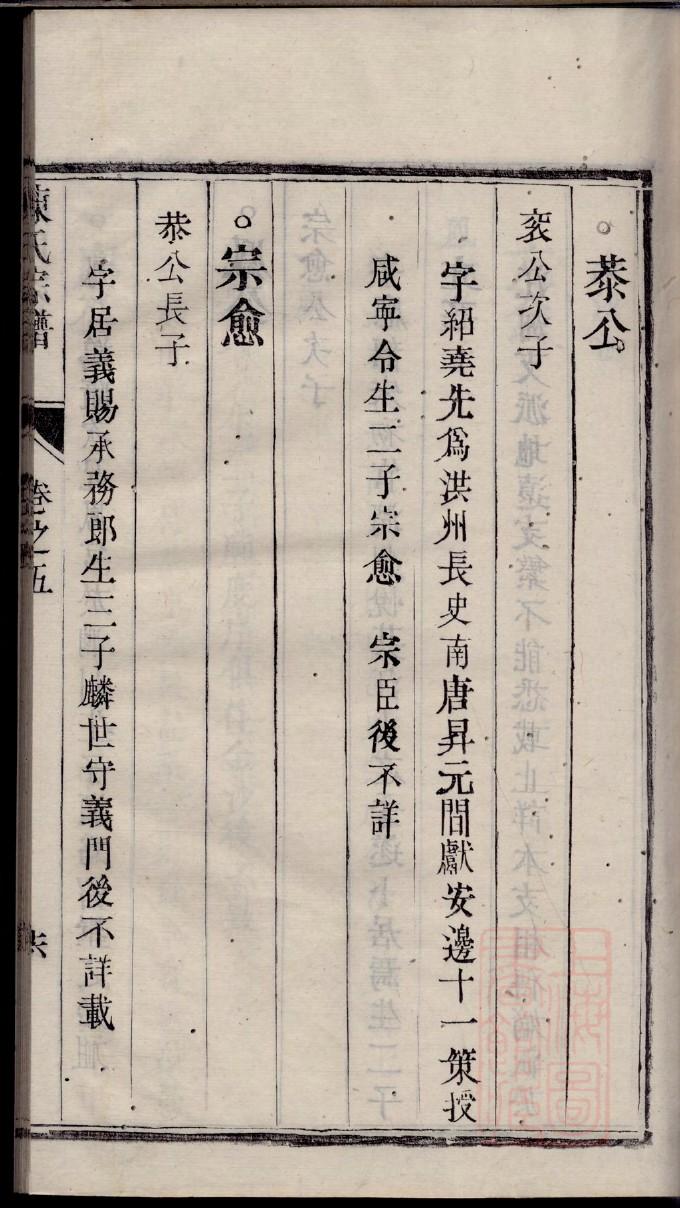 。恭公
衮公次子
字紹堯先爲洪州長史南唐昇元間獻安邊十一策授
咸寧令生二子宗愈　宗臣後不詳
。宗愈
恭公長子
字居義賜承務郎生三子麟世守義門後不詳載
陳氏宗譜　卷之五